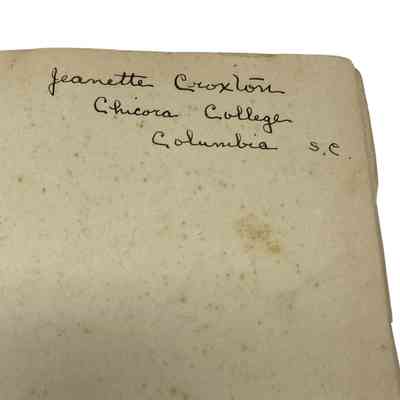 Jeanette Croxton
Chicora College
Columbia S.C.